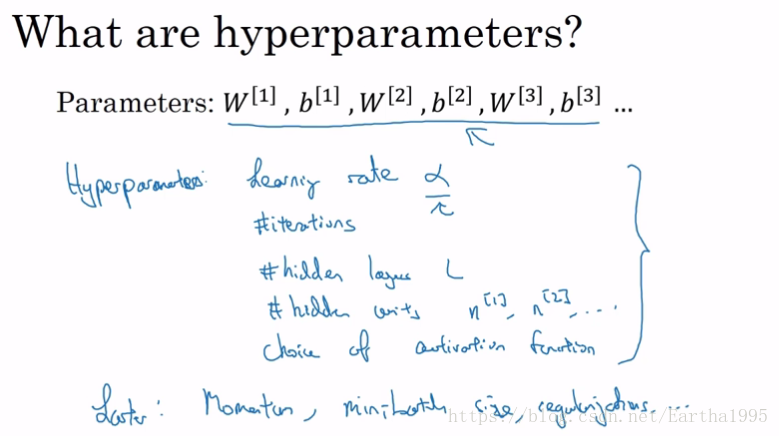 What are hyperparameters?
Parameters: W[1] , b[1] , W[2] , b[2] , W[3] , b[3] ...
Hyperparameters: Learning rate α
#iterations
#hidden layers L
# hidden units n[1], n[2], ....
choice of activation function
Later: Momentum, mini-batch size, regularizations, ...
https://blog.csdn.net/Eartha1995